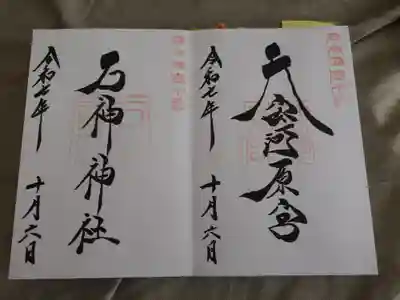 天安河原宮
令和七年
十月六日
石神神社
令和七年
十月六日